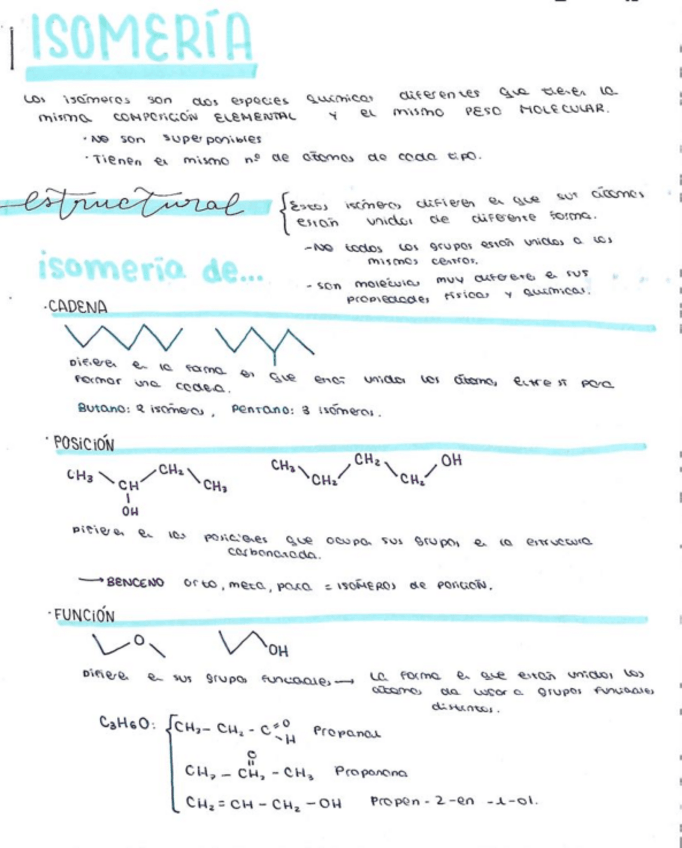 ISOMERÍA
Los isómeros son dos especies químicas diferentes que tienen la
misma COMPOSICIÓN ELEMENTAL y el mismo PESO MOLECULAR.
· No son superponibles
· Tienen el mismo nº de átomos de cada tipo.
estructural
Estos isómeros difieren en que sus átomos
están unidos de diferente forma.
- No todos los grupos están unidos a los
mismos centros.
isomería de...
- son moléculas muy diferente en sus
propiedades físicas y químicas.
· CADENA
Difieren en la forma en que están unidos los átomos entre sí para
formar una cadena.
Butano: 2 isómeros, Pentano: 3 isómeros.
· POSICIÓN
CH3 CH CH2 CH3
OH
CH3 CH2 CH2 CH2 OH
Difieren en las posiciones que ocupan sus grupos en la estructura
carbonatada.
→ BENCENO orto, meta, para = ISÓMEROS de POSICIÓN.
· FUNCIÓN
O
OH
Difieren en sus grupos funcionales → La forma en que están unidos los
átomos da lugar a grupos funcionales
distintos.
C3H6O: CH3 - CH2 - C = O - H Propanal
O
CH3 - CH2 - CH3 Propanona
CH2 = CH - CH2 - OH Propen - 2 - en - 1 - ol.